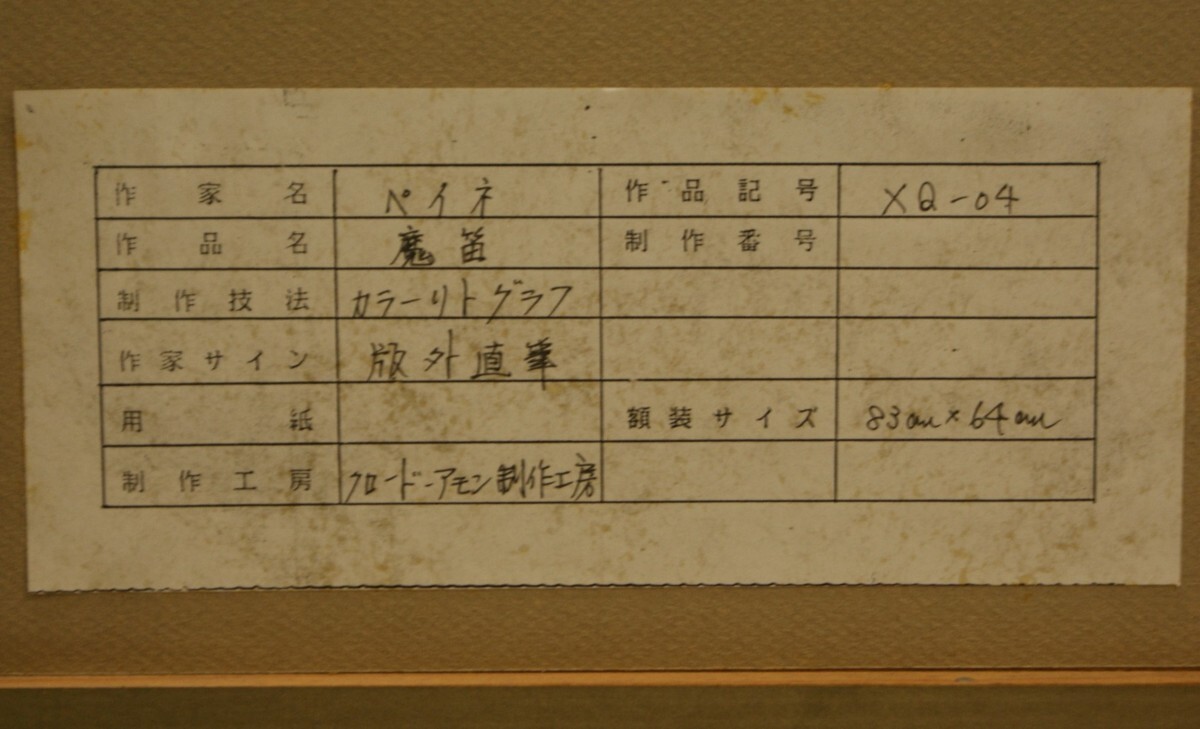 作家名 ペイネ 作品記号 XQ-04
作品名 魔笛 制作番号
制作技法 カラーリトグラフ
作家サイン 版外直筆
用紙 額装サイズ 83cm×64cm
制作工房 クロード・アモン制作工房